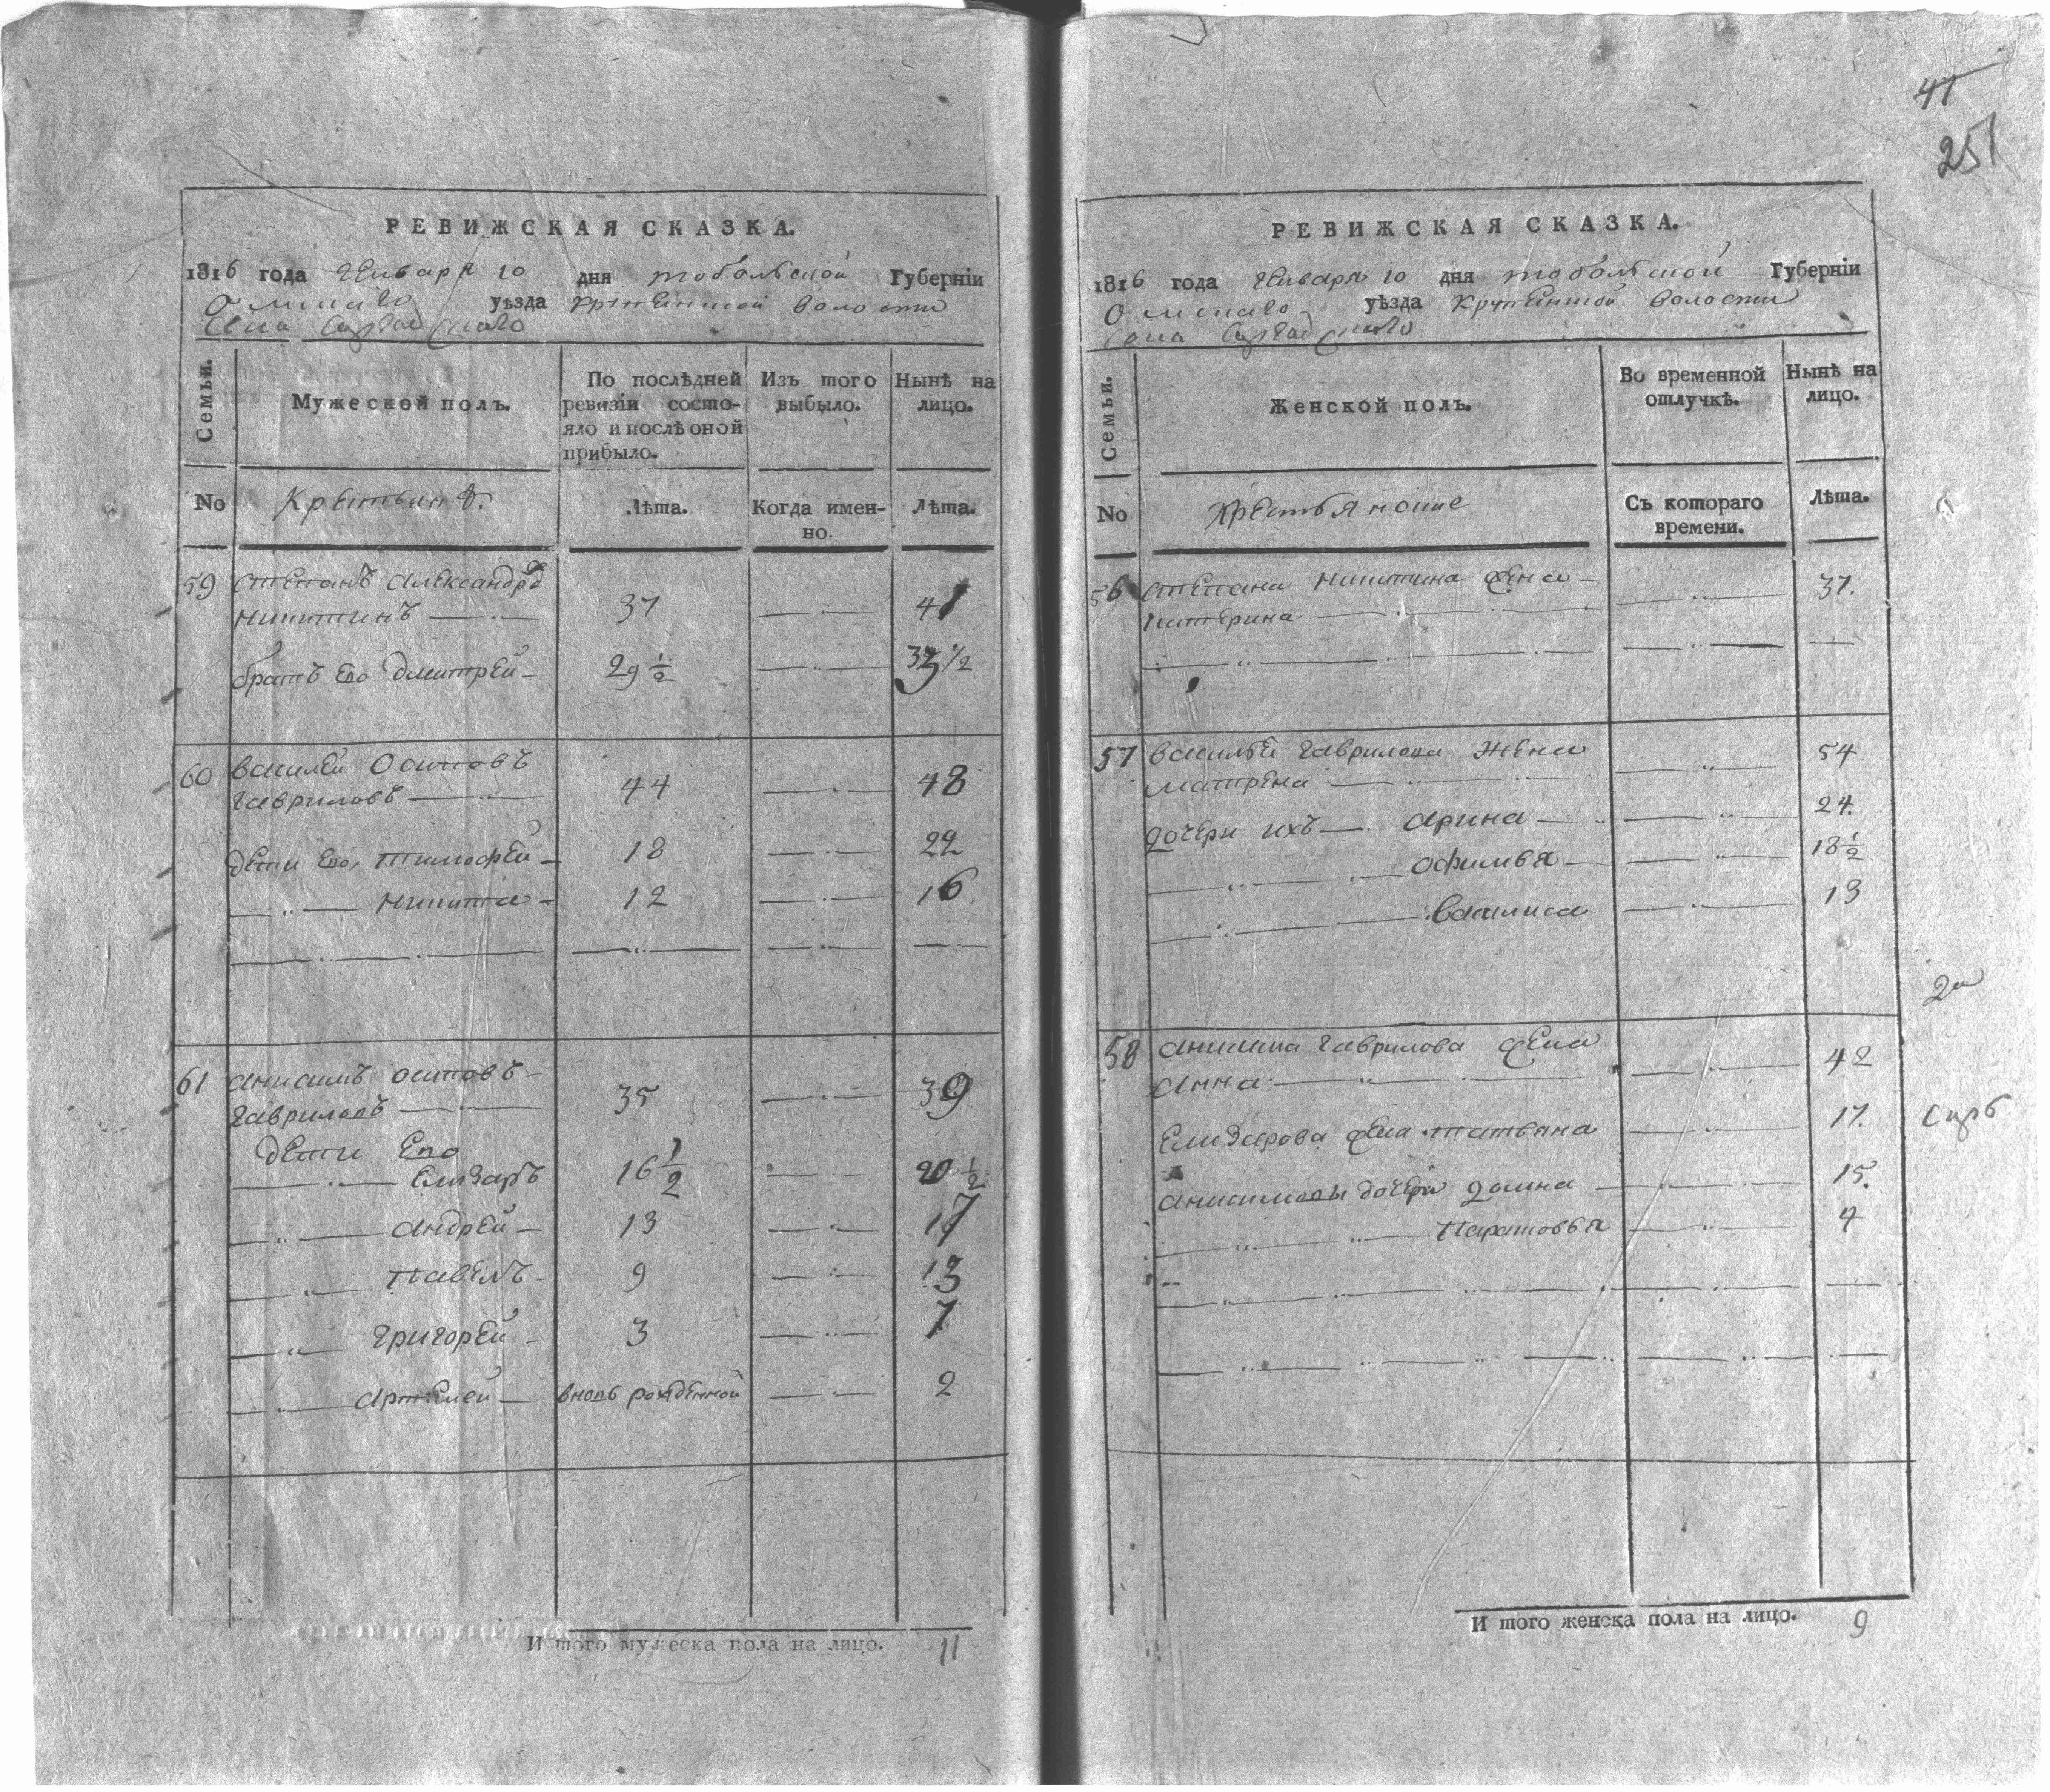 РЕВИЖСКАЯ СКАЗКА.
1816 года Генваря 10 дня Тобольской Губерніи
Омскаго уѣзда Крупенской волости
Села
Семьи.
Мужеской полъ.
По послѣдней ревизіи состо-
яло и послѣ оной
прибыло.
Изъ того
выбыло.
Нынѣ на
лицо.
No
Крестьянъ.
Лѣта.
Когда имен-
но.
Лѣта.
59 Степанъ Александровъ
Никитинъ 37 41
братъ Его Дмитрей 29 1/2 33 1/2
60 Василей Осиповъ
Гавриловъ 44 48
дети Его, Тимофей 18 22
Никита 12 16
61 Анисимъ Осиповъ
Гавриловъ 35 39
Дети Его
Елизаръ 16 1/2 20 1/2
Андрей 13 17
Павелъ 9 13
Григорей 3 7
Артемей вновь рожденной 2
И того мужеска пола на лицо. 11
41
251
РЕВИЖСКАЯ СКАЗКА.
1816 года Генваря 10 дня Тобольской Губерніи
Омскаго уѣзда Крупенской волости
Села
Семьи.
Женской полъ.
Во временной
отлучкѣ.
Нынѣ на
лицо.
No
Крестьяноке
Съ котораго
времени.
Лѣта.
56 Степана Никитина жена
Катерина 37.
57 Василья Гаврилова жена
Матрена 54
дочери ихъ Арина 24.
Офимья 18 1/2
Василиса 13
58 Анисима Гаврилова жена
Анна 42
Елизарова жена Татьяна 17.
Анисимовы дочери Домна 15.
Парасковья 4
И того женска пола на лицо. 9